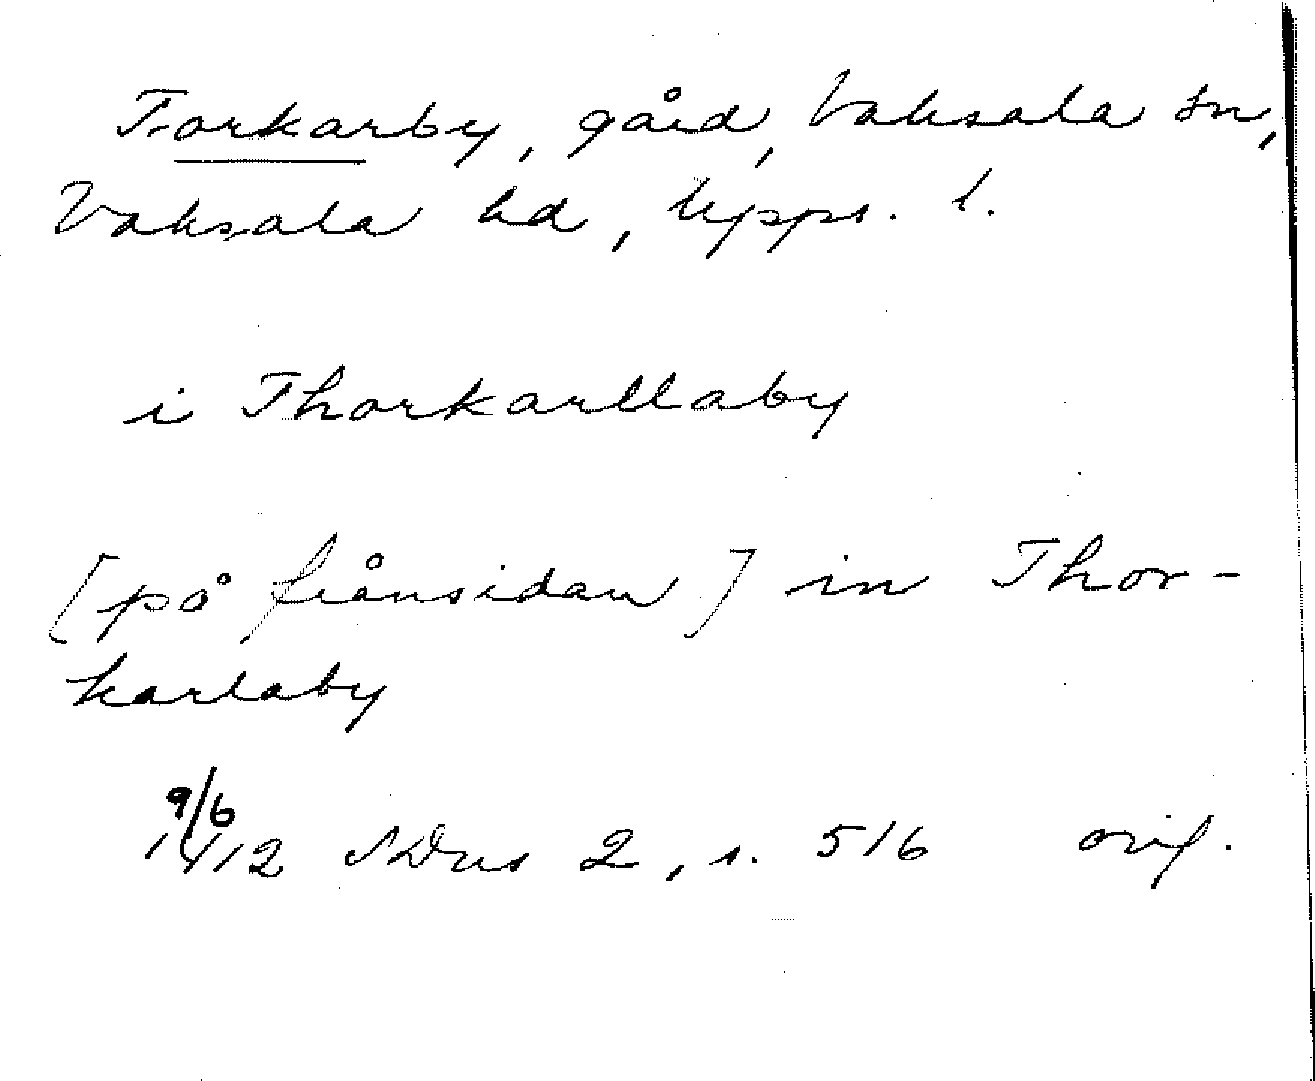 Torkarby, gård, Vaksala sn,
Vaksala hd, Upps. l.
i Thorkarllaby
[på frånsidan] in Thor-
karlaby
9/6
1412 SDns 2, s. 516 orig.